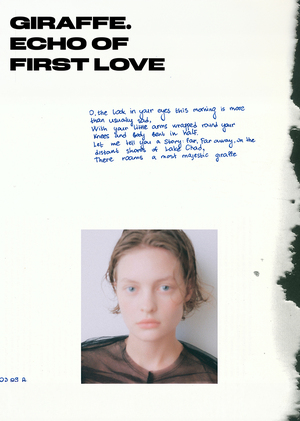 GIRAFFE.
ECHO OF
FIRST LOVE
O, the look in your eyes this morning is more
than usually sad,
With your little arms wrapped round your
knees and body bent in half.
Let me tell you a story: far, far away, on the
distant shores of Lake Chad,
There roams a most majestic giraffe